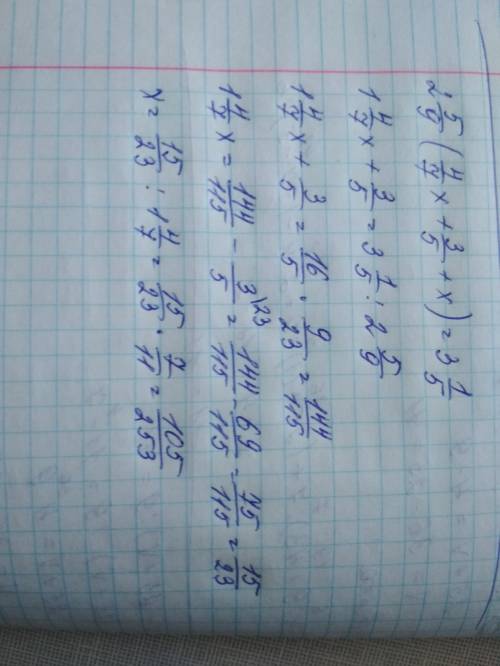 2 5/9 (4/7 x + 3/5 + x) = 3 1/5
1 4/7 x + 3/5 = 3 1/5 : 2 5/9
1 4/7 x + 3/5 = 16/5 · 9/23 = 144/115
1 4/7 x = 144/115 - 3\23/5 = 144/115 - 69/115 = 75/115 = 15/23
x = 15/23 : 1 4/7 = 15/23 · 7/11 = 105/253